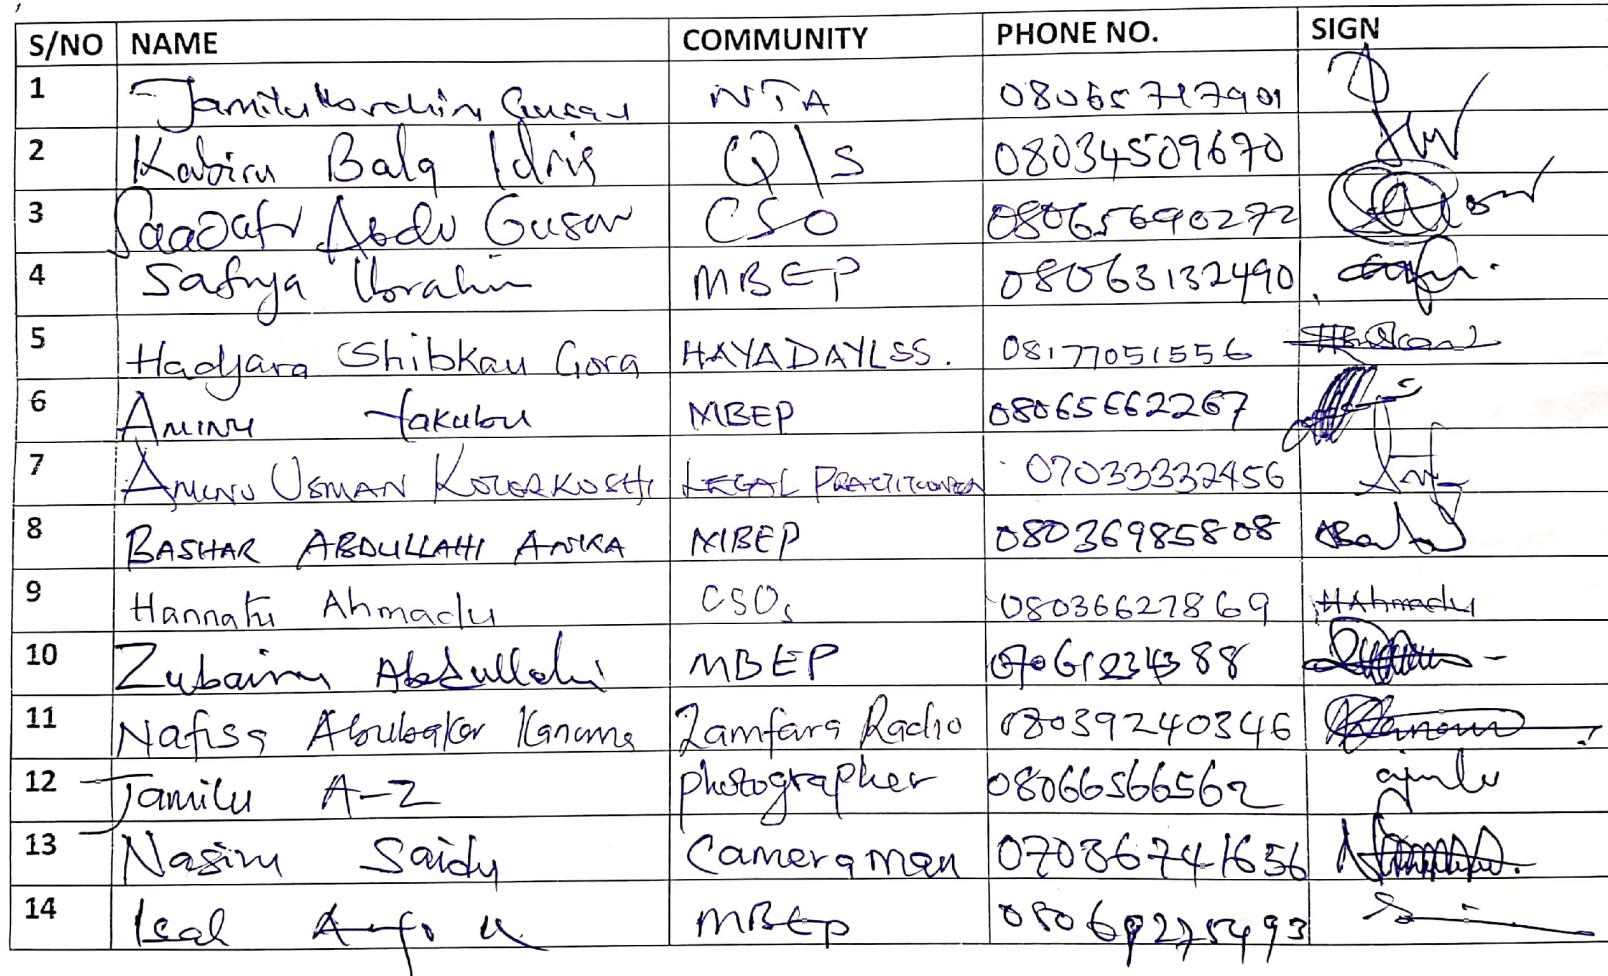 S/NO NAME COMMUNITY PHONE NO. SIGN
1 Jamilu Ibrahim Gusau NTA 08065717901
2 Kabiru Bala Idris Q/S 08034509670
3 Saadatu Abdu Gusau CSO 08065690272
4 Safiya Ibrahim MBEP 08063132490
5 Hadjara Shibkau Gora HAYADAYLSS. 08177051556
6 AMINU Yakubu MBEP 08065662267
7 AMINU USMAN KOTORKOSHI LEGAL PRACTITIONER 07033332456
8 BASHAR ABDULLAHI ANKA MBEP 08036985808
9 Hannatu Ahmadu CSOs 08036627869 HAhmadu
10 Zubairu Abdullahi MBEP
11 Nafisa Abubakar Kanoma Zamfara Radio 08039240346
12 Jamilu A-Z photographer 08066566562
13 Nasiru Saidu Cameraman 07036741656
14 MBEP